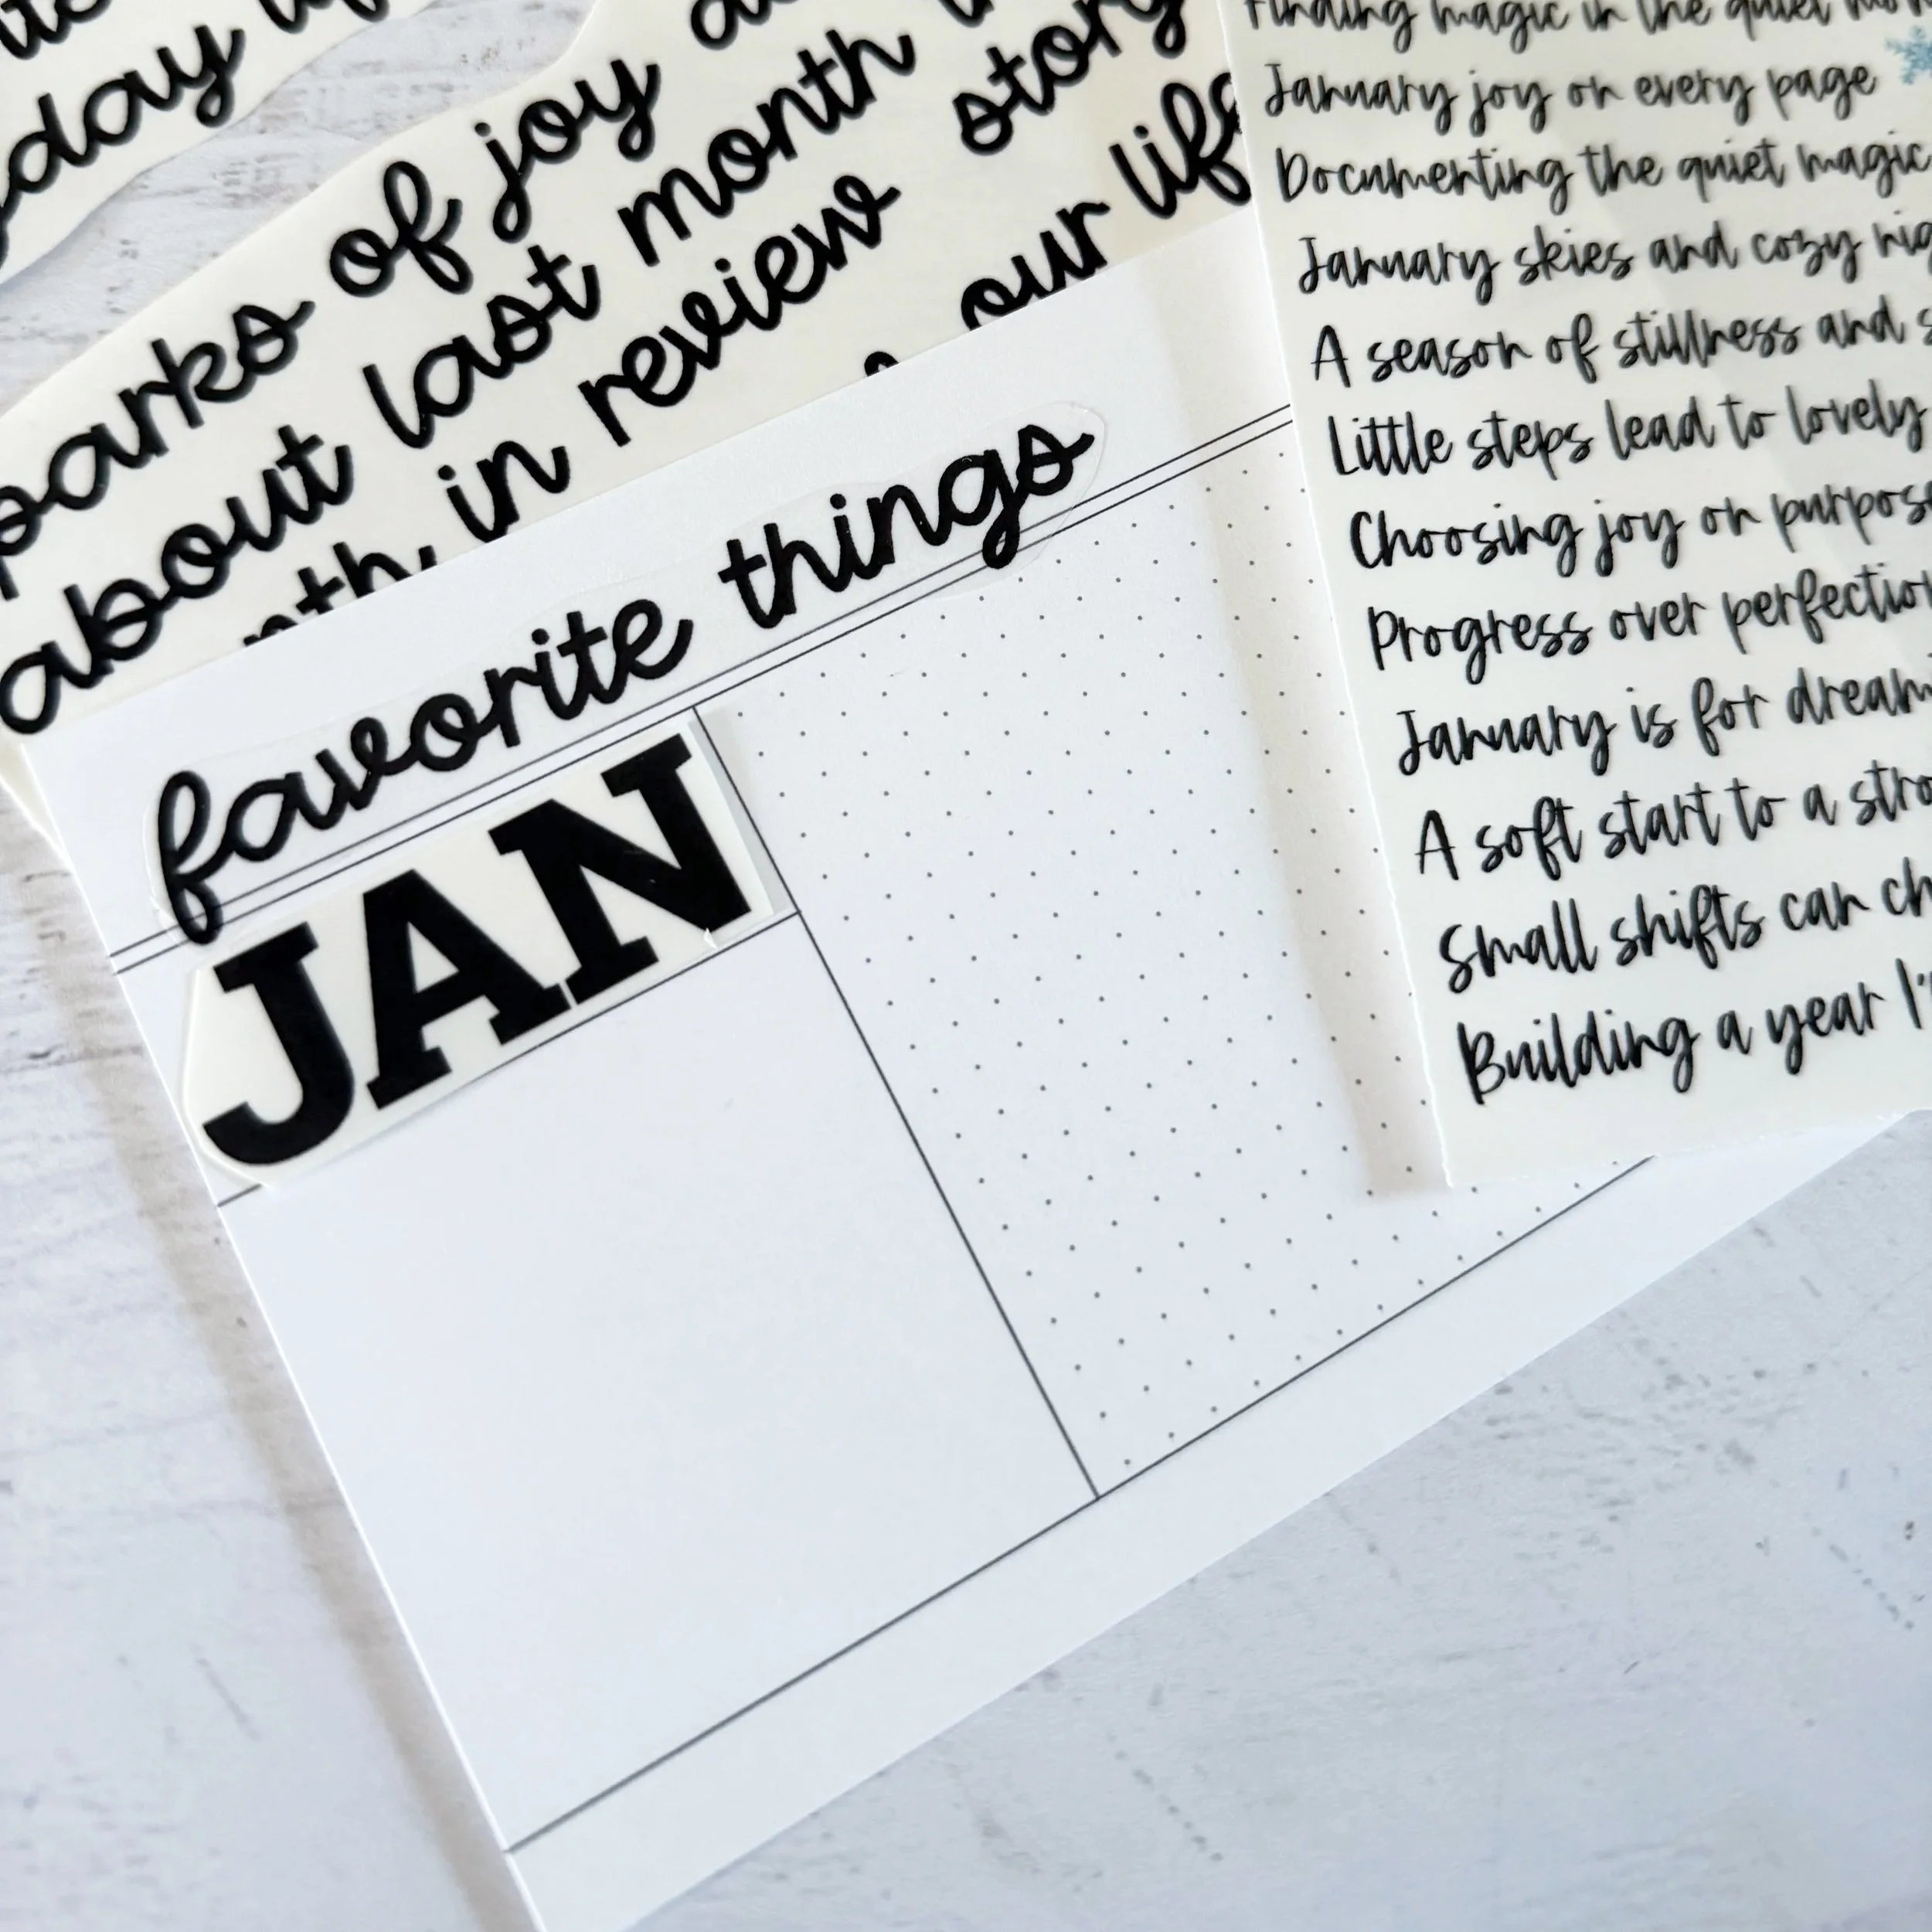 day
of joy
about last month
in review
story
our
favorite things
JAN
Finding magic in the quiet
January joy on every page
Documenting the quiet magic
January skies and cozy
A season of stillness and
Little steps lead to lovely
Choosing joy on
Progress over
January is for
A soft start to a
Small shifts can
Building a year